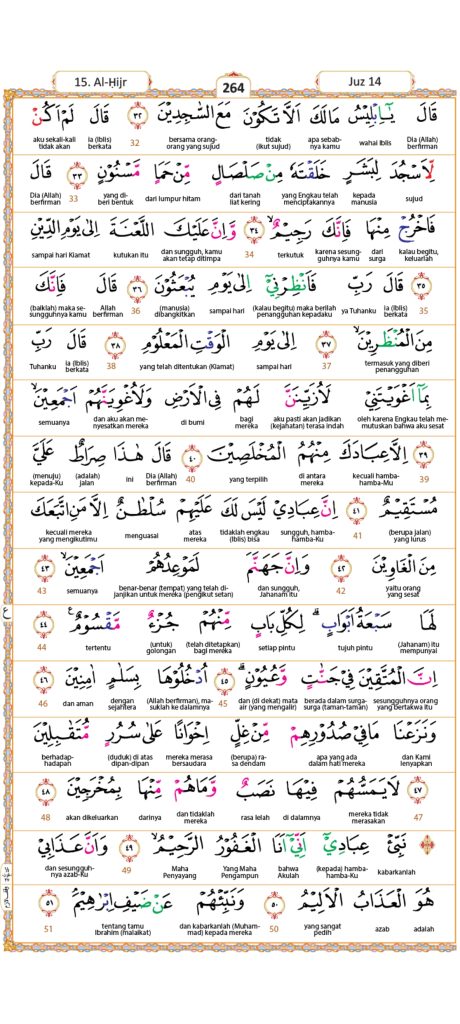 15. Al-Ḥijr
264
Juz 14
قَالَ يٰٓاِبْلِيْسُ مَالَكَ اَلَّا تَكُوْنَ مَعَ السّٰجِدِيْنَ ٣٢ قَالَ لَمْ اَكُنْ
Dia (Allah) berfirman wahai Iblis apa sebab-nya kamu tidak (ikut sujud) bersama orang-orang yang sujud 32 ia (Iblis) berkata aku sekali-kali tidak akan
لِّاَسْجُدَ لِبَشَرٍ خَلَقْتَهٗ مِنْ صَلْصَالٍ مِّنْ حَمَاٍ مَّسْنُوْنٍ ٣٣ قَالَ
sujud kepada manusia yang Engkau telah menciptakannya dari tanah liat kering dari lumpur hitam yang di-beri bentuk 33 Dia (Allah) berfirman
فَاخْرُجْ مِنْهَا فَاِنَّكَ رَجِيْمٌۙ ٣٤ وَّاِنَّ عَلَيْكَ اللَّعْنَةَ اِلٰى يَوْمِ الدِّيْنِ
kalau begitu, keluarlah dari surga karena sesung-guhnya kamu terkutuk 34 dan sungguh, kamu akan tetap ditimpa kutukan itu sampai hari Kiamat
٣٥ قَالَ رَبِّ فَاَنْظِرْنِيْٓ اِلٰى يَوْمِ يُبْعَثُوْنَ ٣٦ قَالَ فَاِنَّكَ
35 ia (Iblis) berkata ya Tuhanku (kalau begitu) maka berilah penangguhan kepadaku sampai hari (manusia) dibangkitkan 36 Allah berfirman (baiklah) maka se-sungguhnya kamu
مِنَ الْمُنْظَرِيْنَۙ ٣٧ اِلٰى يَوْمِ الْوَقْتِ الْمَعْلُوْمِ ٣٨ قَالَ رَبِّ
termasuk yang diberi penangguhan 37 sampai hari yang telah ditentukan (Kiamat) 38 ia (Iblis) berkata Tuhanku
بِمَآ اَغْوَيْتَنِيْ لَاُزَيِّنَنَّ لَهُمْ فِى الْاَرْضِ وَلَاُغْوِيَنَّهُمْ اَجْمَعِيْنَۙ
oleh karena Engkau telah me-mutuskan bahwa aku sesat aku pasti akan jadikan (kejahatan) terasa indah bagi mereka di bumi dan aku akan me-nyesatkan mereka semuanya
٣٩ اِلَّا عِبَادَكَ مِنْهُمُ الْمُخْلَصِيْنَ ٤٠ قَالَ هٰذَا صِرَاطٌ عَلَيَّ
39 kecuali hamba-hamba-Mu di antara mereka yang terpilih 40 Dia (Allah) berfirman ini (adalah) jalan (menuju) kepada-Ku
مُسْتَقِيْمٌ ٤١ اِنَّ عِبَادِيْ لَيْسَ لَكَ عَلَيْهِمْ سُلْطٰنٌ اِلَّا مَنِ اتَّبَعَكَ
(berupa jalan) yang lurus 41 sungguh, hamba-hamba-Ku tidaklah engkau (Iblis) bisa atas mereka menguasai kecuali mereka yang mengikutimu
مِنَ الْغَاوِيْنَ ٤٢ وَاِنَّ جَهَنَّمَ لَمَوْعِدُهُمْ اَجْمَعِيْنَۙ ٤٣
yaitu orang yang sesat 42 dan sungguh, Jahanam itu benar-benar (tempat) yang telah di-janjikan untuk mereka (pengikut setan) semuanya 43
لَهَا سَبْعَةُ اَبْوَابٍۗ لِكُلِّ بَابٍ مِّنْهُمْ جُزْءٌ مَّقْسُوْمٌࣖ ٤٤
(Jahanam) itu mempunyai tujuh pintu setiap pintu (telah ditetapkan) bagi mereka (untuk) golongan tertentu 44
اِنَّ الْمُتَّقِيْنَ فِيْ جَنّٰتٍ وَّعُيُوْنٍۗ ٤٥ اُدْخُلُوْهَا بِسَلٰمٍ اٰمِنِيْنَ ٤٦
sesungguhnya orang yang bertakwa itu berada dalam surga-surga (taman-taman) dan (di dekat) mata air (yang mengalir) 45 (Allah berfirman), ma-suklah ke dalamnya dengan sejahtera dan aman 46
وَنَزَعْنَا مَا فِيْ صُدُوْرِهِمْ مِّنْ غِلٍّ اِخْوَانًا عَلٰى سُرُرٍ مُّتَقٰبِلِيْنَ
dan Kami lenyapkan apa yang ada dalam hati mereka (berupa) ra-sa dendam mereka merasa bersaudara (duduk) di atas dipan-dipan berhadap-hadapan
٤٧ لَا يَمَسُّهُمْ فِيْهَا نَصَبٌ وَّمَا هُمْ مِّنْهَا بِمُخْرَجِيْنَ ٤٨
47 mereka tidak merasakan di dalamnya rasa lelah dan tidaklah mereka darinya akan dikeluarkan 48
نَبِّئْ عِبَادِيْٓ اَنِّيْٓ اَنَا الْغَفُوْرُ الرَّحِيْمُۙ ٤٩ وَاَنَّ عَذَابِيْ
kabarkanlah (kepada) hamba-hamba-Ku bahwa Akulah Yang Maha Pengampun Maha Penyayang 49 dan sesungguh-nya azab-Ku
هُوَ الْعَذَابُ الْاَلِيْمُ ٥٠ وَنَبِّئْهُمْ عَنْ ضَيْفِ اِبْرٰهِيْمَۘ ٥١
adalah azab yang sangat pedih 50 dan kabarkanlah (Muham-mad) kepada mereka tentang tamu Ibrahim (malaikat) 51
ع